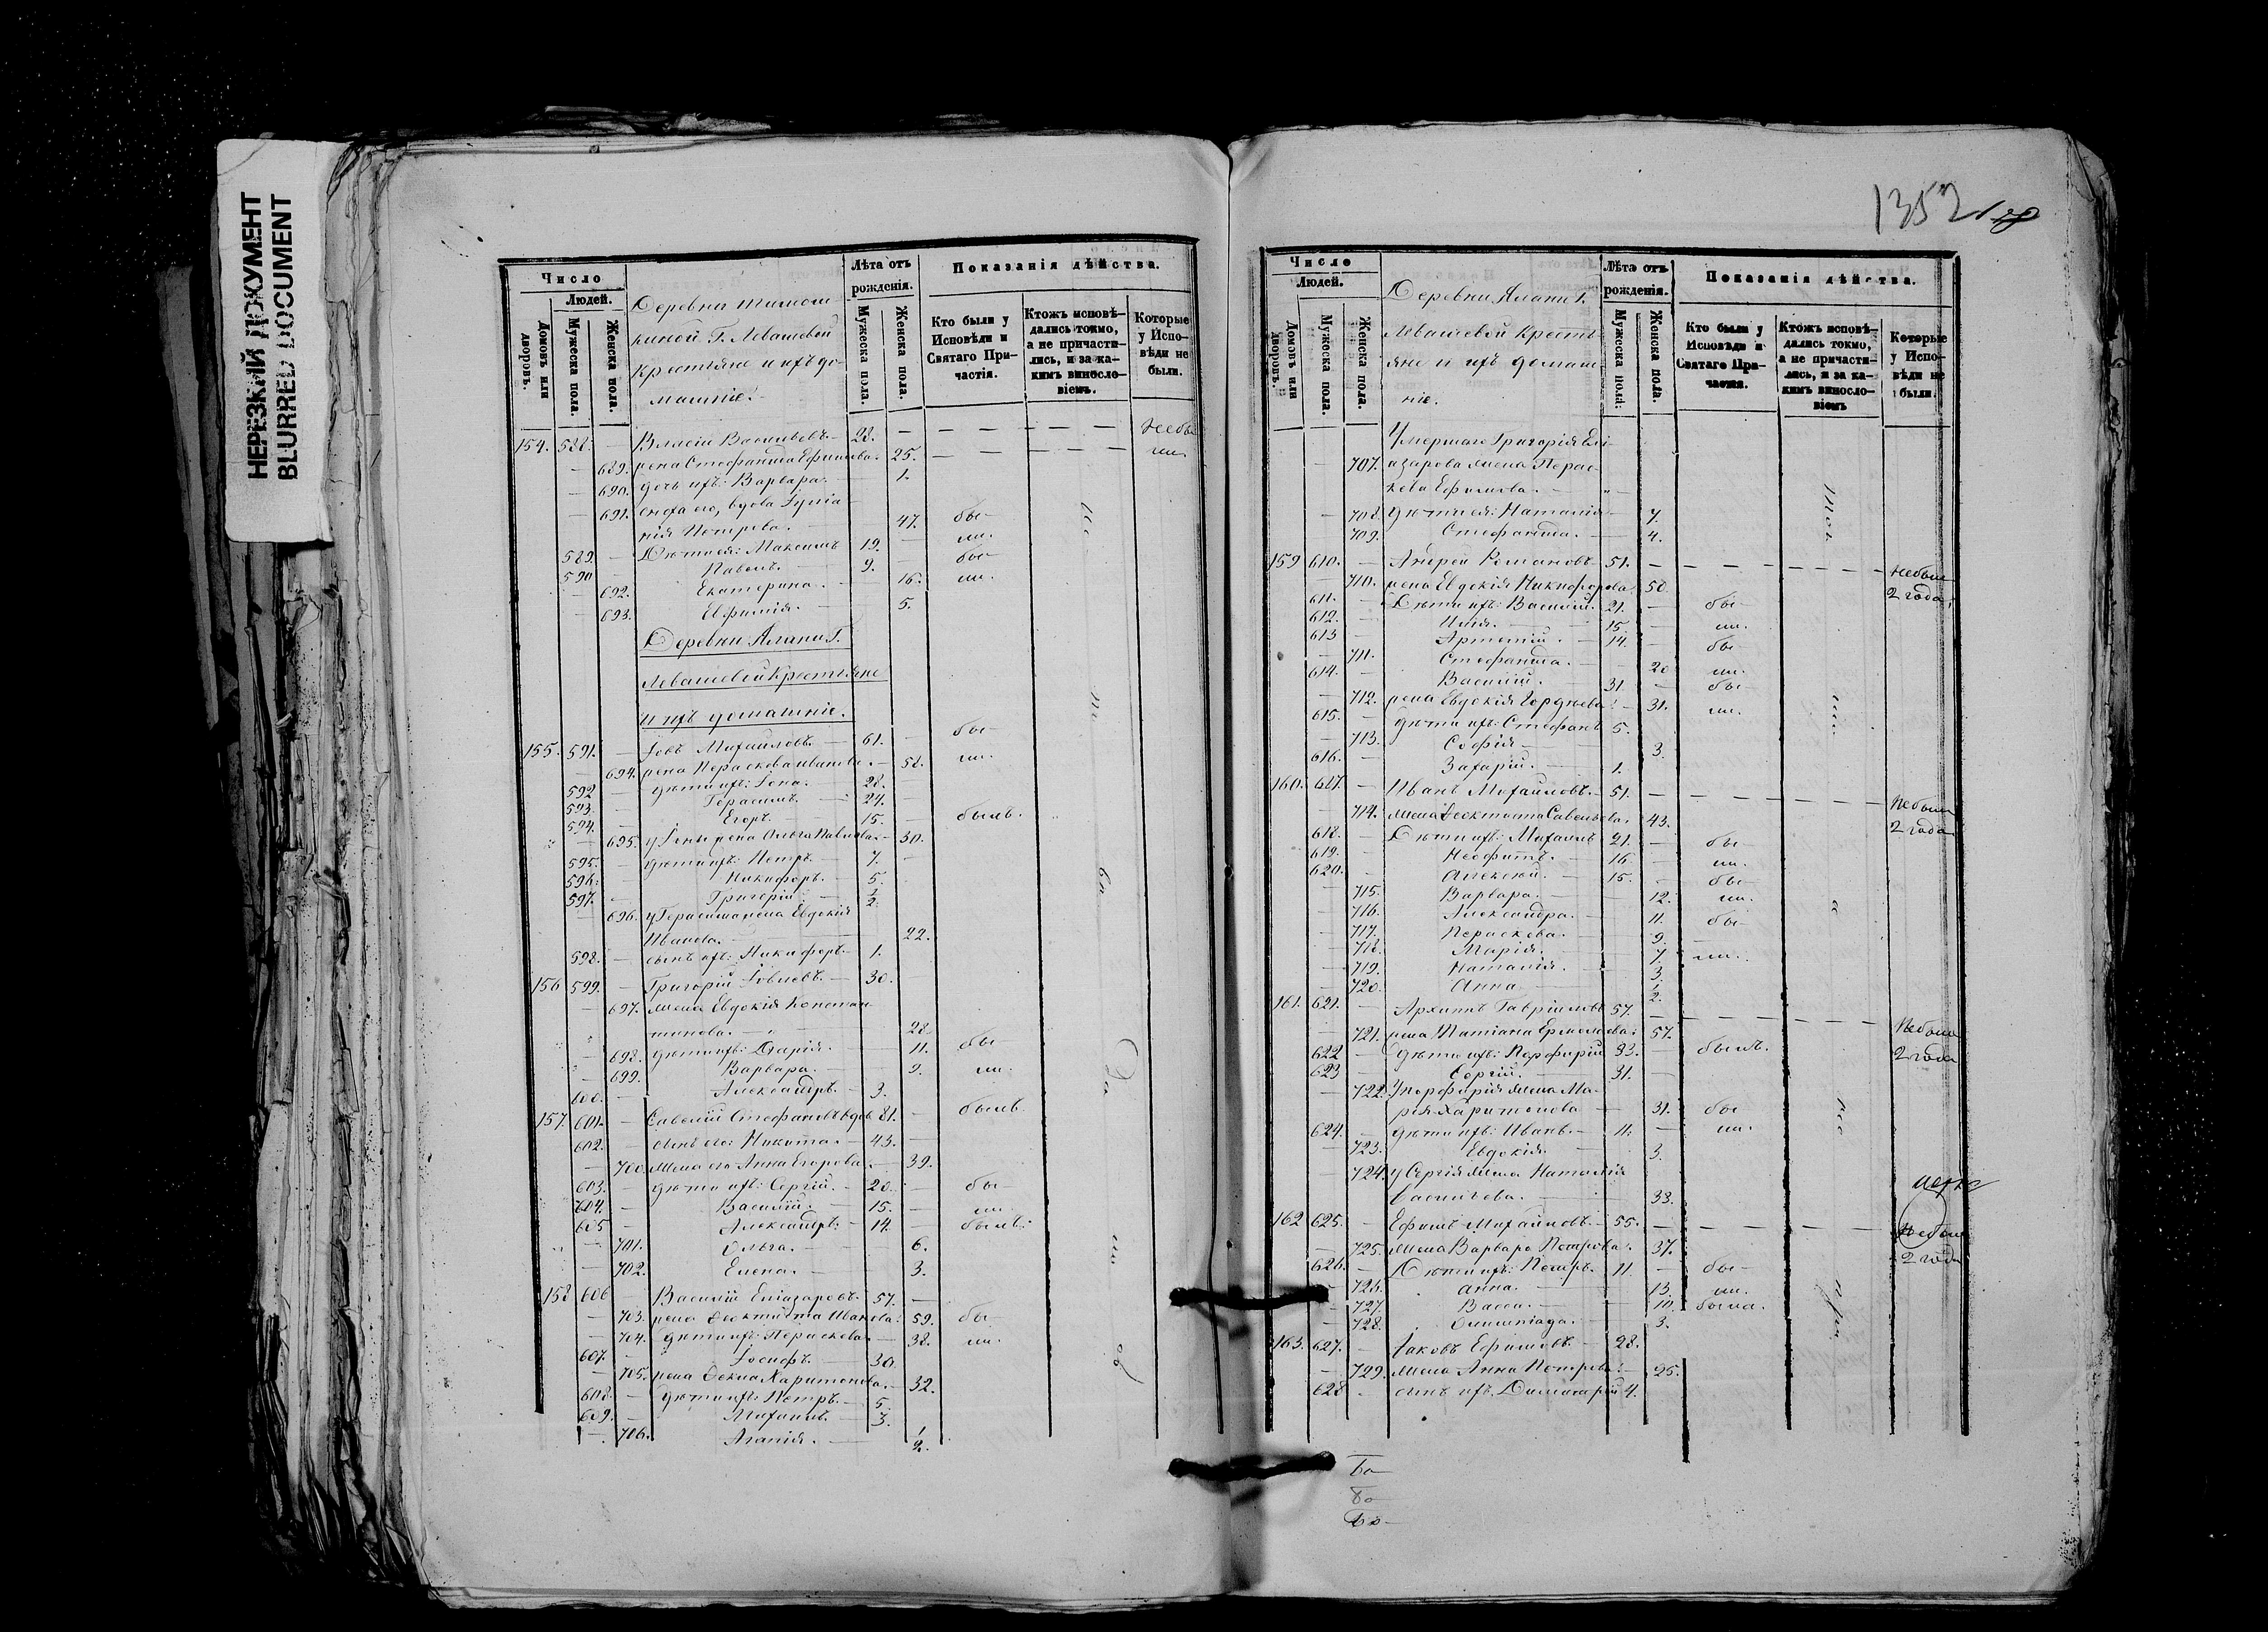 НЕРЕЗКИЙ ДОКУМЕНТ
BLURRED DOCUMENT
Число
Людей.
Домовъ или дворовъ.
Мужеска пола.
Женска пола.
Деревни
киной Г. Левашевой
крестьяне и ихъ до-
машніе.
Лѣта отъ рожденія.
Мужеска пола.
Женска пола.
Показанія дѣйства.
Кто были у Исповѣди и Святаго При- частія.
Ктожъ исповѣ- дались токмо, а не причасти- лись, и за ка- кимъ винносло- віемъ.
Которые у Испо- вѣди не были.
154. 588. — Власій Васильевъ — 28. — — — — — небы
— 689. жена Стефанида Ефимова. 25. — — — — ли
— 690. дочь ихъ: Варвара. — 1.
— 691. сноха его, вдова
нія Петрова. — 47. бы-
589. — Дѣти ея: Максимъ 19. — ли.
590 — Павелъ. — 9. — бы-
— 692. Екатерина. — 16. ли.
— 693. Евфимія. — 5.
Деревни Г.
Левашевой Крестьяне
и ихъ домашніе.
155. 591. — Іовъ Михайловъ. — 61. — бы-
— 694. жена Параскева Иванова. — 58. ли.
592 — дѣти ихъ: Іона. 28.
593. — Герасимъ. — 24. —
594. — Егоръ. — 15. — былъ.
— 695. у Іоны жена Ольга Павлова. — 30.
595. — дѣти ихъ: Петръ. — 7. —
596. — Никифоръ. — 5.
597. — Григорій — 1/2.
— 696. у Герасима жена Евдокія
Иванова. — 22.
598. — сынъ ихъ: Никифоръ. 1.
156 599. — Григорій Іовлевъ. — 30.
— 697. жена Евдокія Констан
тинова. — 28.
— 698. дѣти ихъ: Дарія. — 11. бы-
— 699. Варвара. — 9. ли.
600. — Александръ. — 3.
157. 601. — Савелій Стефановъ вдов 81. — былъ.
602. — сынъ его: Никита. — 43. —
— 700. жена его Анна Егорова. — 39.
603. — дѣти ихъ: Сергій. — 20. — бы-
604. — Василій. — 15. — ли
605 — Александръ. — 14. — былъ.
— 701. Ольга. — 6.
— 702. Елена. — 3.
158 606 — Василій Еліазаровъ. 57. —
— 703. жена Феоктиста Иванова. 59. бы-
— 704. дѣти ихъ: Параскева. — 38. ли.
607. — Іосифъ. — 30.
— 705. жена Фекла Харитонова. — 32.
608. — дѣти ихъ: Петръ. — 5.
609. — Михаилъ. — 3.
— 706. Агапія. — 1/2.
1352
Число
Людей.
Домовъ или дворовъ.
Мужеска пола.
Женска пола.
Деревни Г.
Левашевой Кресть-
яне и ихъ домаш-
ніе.
Лѣта отъ рожденія.
Мужеска пола.
Женска пола.
Показанія дѣйства.
Кто были у Исповѣди и Святаго При- частія.
Ктожъ исповѣ- дались токмо, а не причасти- лись, и за ка- кимъ винносло- віемъ
Которые у Испо- вѣди не были.
Умершаго Григорія Елі-
— 707. азарова жена Парас-
кева Ефимова. —
— 708. дѣти ея: Наталія — 7.
709. Стефанида. — 4.
159 610. — Андрей Романовъ 51. — — — — небыли
— 710. жена Евдокія Никифорова. 50 2 года.
611. — Дѣти ихъ: Василій. 21. — бы-
612. — Илія. — 15 — ли.
613 — Артемій. — 14. — бы-
— 711. Стефанида. — 20 ли.
614. — Василій. — 31. — бы-
— 712. жена Евдокія Гордѣева. — 31. ли.
615. — дѣти ихъ: Стефанъ 5.
— 713. Софія. — 3.
616. — Захарій. — 1.
160. 617. — Иванъ Михайловъ. — 51. — — — — Небыли
— 714. жена Феоктиста Савельева. 43. 2 года
618. — Дѣти ихъ: Михаилъ 21. — бы-
619. — Неофитъ. — 16 — ли.
620. — Алексѣй. — 15. — бы-
— 715. Варвара. — 12. ли.
— 716. Александра. — 11. бы-
— 717. Параскева. — 9.
— 718. Марія. — 7. ли.
— 719. Наталія. — 3.
— 720. Анна — 1/2.
161. 621. — Архипъ Гавріиловъ 57. — — — — Небыли
— 721. жена Татіана Ермолаева. 57. 2 года
622 — дѣти ихъ: Порфирій 33. — былъ.
623 — Сергій. — 31. —
— 722. У Порфирія жена Ма-
рія Харитонова — 31. бы
624. — дѣти ихъ: Иванъ. — 11. — ли.
— 723. Евдокія. — 3.
— 724. у Сергія жена Наталія
Васильева. — 33.
162 625. — Ефимъ Михайловъ. — 55. — — — — Небыли
— 725. жена Варвара Петрова. 37. 2 года
626. — Дѣти ихъ: Петръ. 11. — бы-
— 726. Анна. — 13. ли.
— 727. Васса. — 10. была.
— 728. Олимпіада. — 3.
163. 627. — Іаковъ Ефимовъ. — 28.
— 729. жена Анна Петрова. — 25.
628 — сынъ ихъ Димитрій 4.